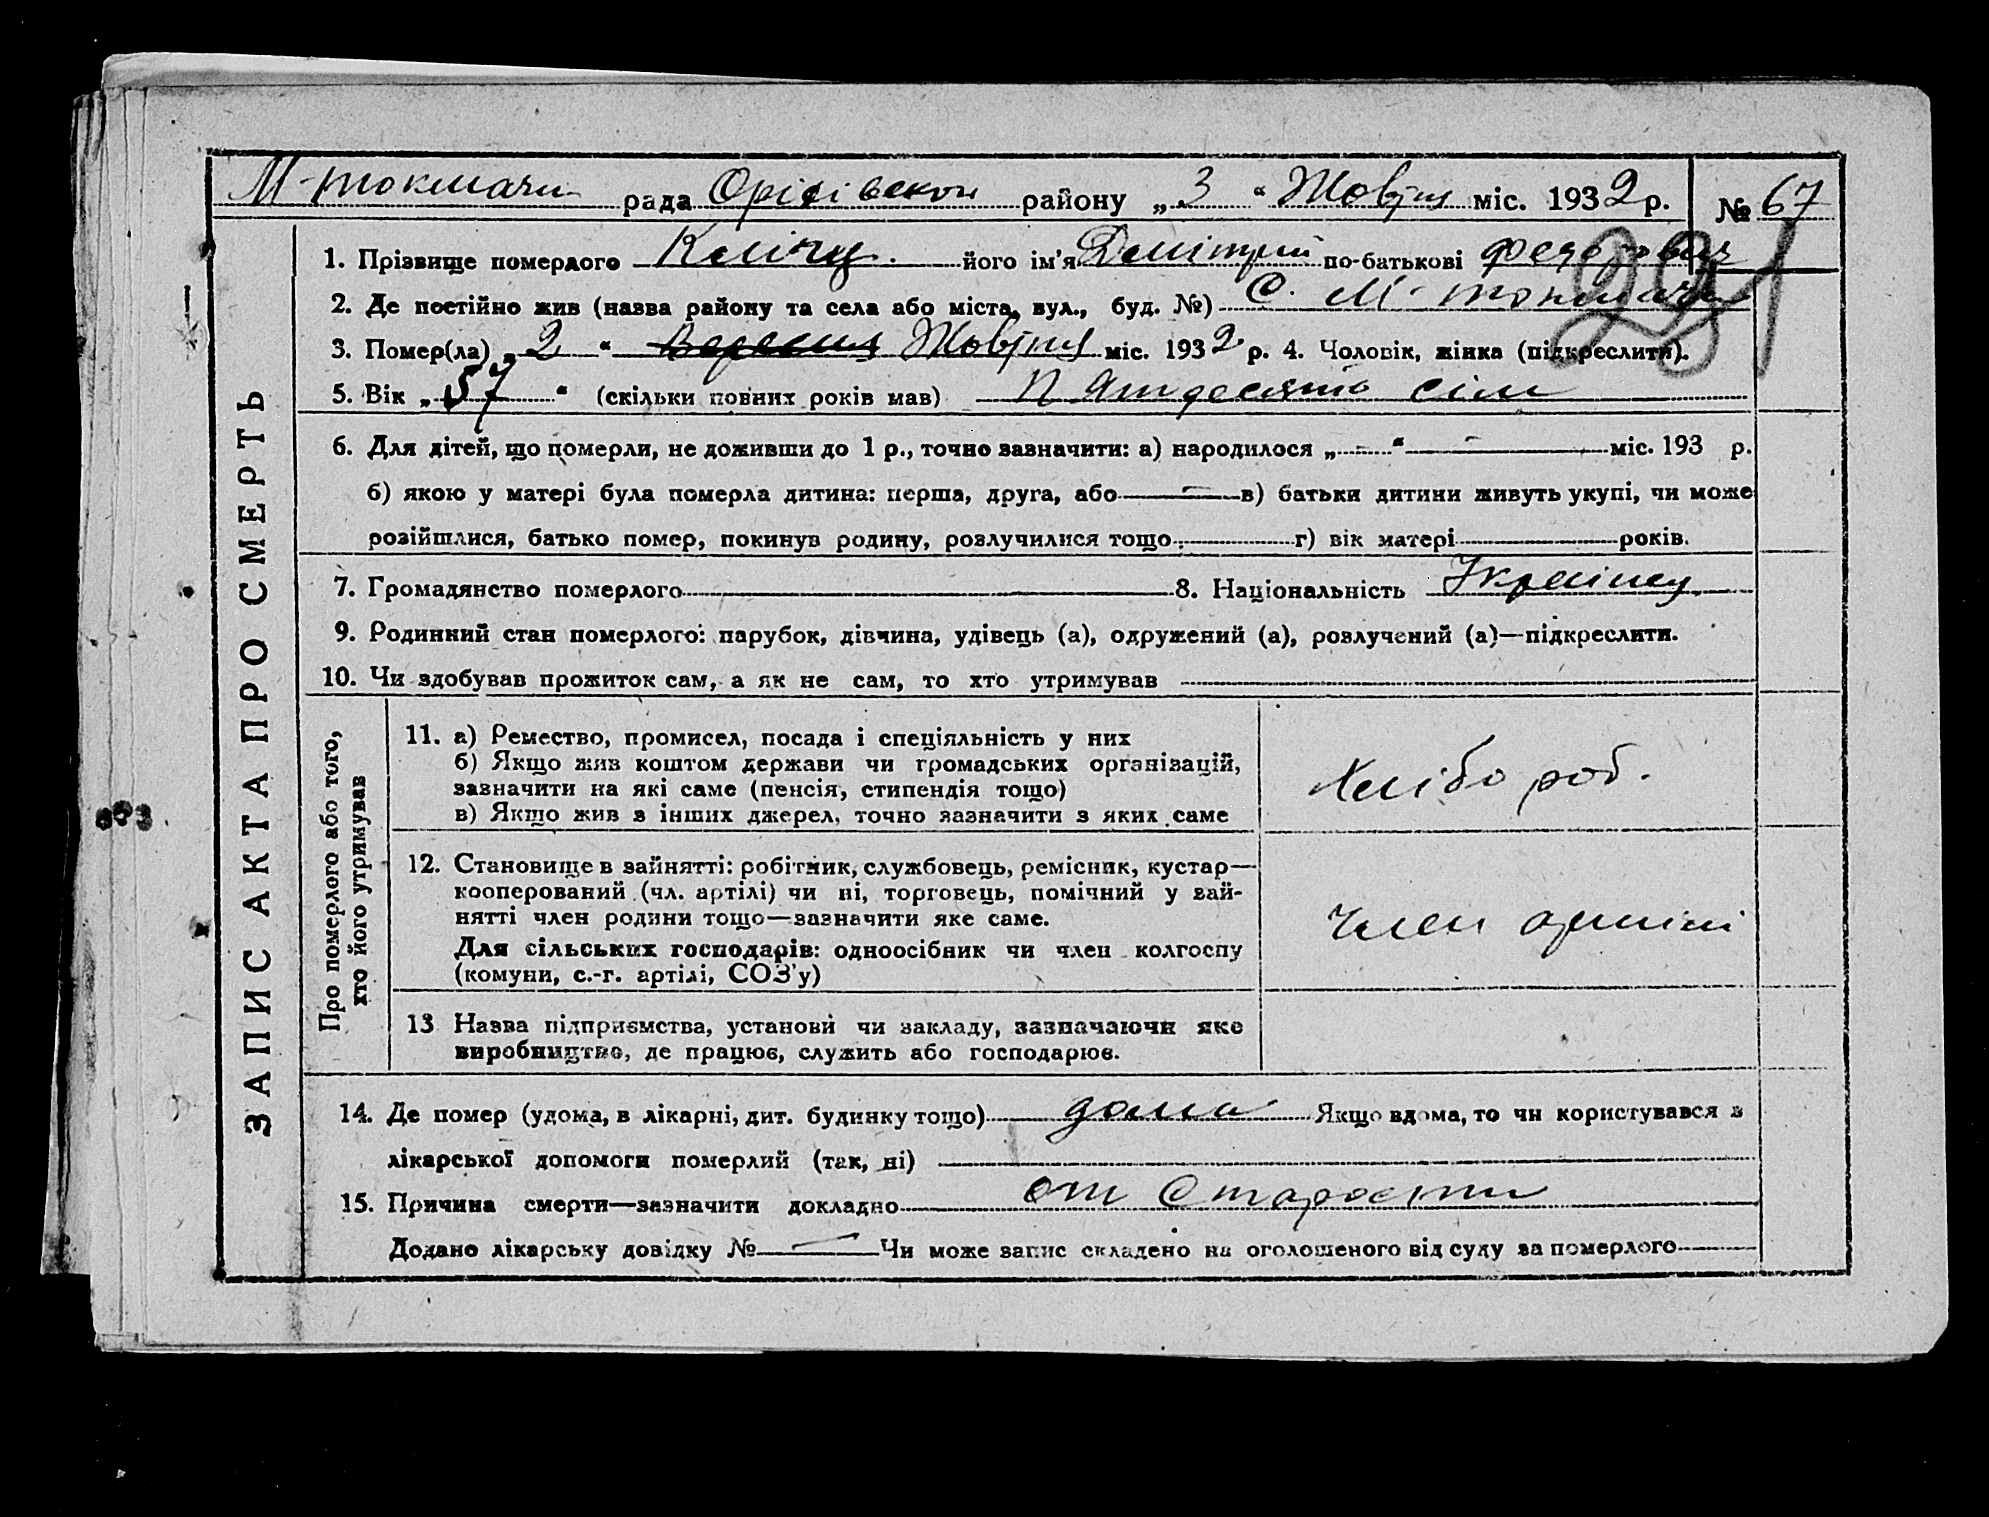 М-токмачи рада Орісівської району „3“ Жовтня міс. 1932 р. № 67
1. Прізвище померлого його ім'я Дмітрий по-батькові Федорович
291
2. Де постійно жив (назва району та села або міста, вул., буд. №) С. М-токмачи
3. Помер(ла) „2“ Вересня Жовтня міс. 1932 р. 4. Чоловік, жінка (підкреслити).
5. Вік „57“ (скільки повних років мав) Пятдесять сім
6. Для дітей, що померли, не доживши до 1 р., точно зазначити: а) народилося „ “ міс. 193 р.
б) якою у матері була померла дитина: перша, друга, або в) батьки дитини живуть укупі, чи може
розійшлися, батько помер, покинув родину, розлучилися тощо г) вік матері років.
7. Громадянство померлого 8. Національність Українец
9. Родинний стан померлого: парубок, дівчина, удівець (а), одружений (а), розлучений (а)—підкреслити.
10. Чи здобував прожиток сам, а як не сам, то хто утримував
ЗАПИС АКТА ПРО СМЕРТЬ
Про померлого або того,
хто його утримував
11. а) Ремество, промисел, посада і спеціяльність у них
б) Якщо жив коштом держави чи громадських організацій,
зазначити на які саме (пенсія, стипендія тощо)
в) Якщо жив з інших джерел, точно зазначити з яких саме
Хлібороб.
12. Становище в зайнятті: робітник, службовець, ремісник, кустар—
кооперований (чл. артілі) чи ні, торговець, помічний у зай-
нятті член родини тощо—зазначити яке саме.
Для сільських господарів: одноосібник чи член колгоспу
(комуни, с.-г. артілі, СОЗ'у)
член артілі
13 Назва підприємства, установи чи закладу, зазначаючи яке
виробництво, де працює, служить або господарює.
14. Де помер (удома, в лікарні, дит. будинку тощо) дома Якщо вдома, то чи користувався з
лікарської допомоги померлий (так, ні)
15. Причина смерти—зазначити докладно от Старости
Додано лікарську довідку № Чи може запис складено на оголошеного від суду за померлого